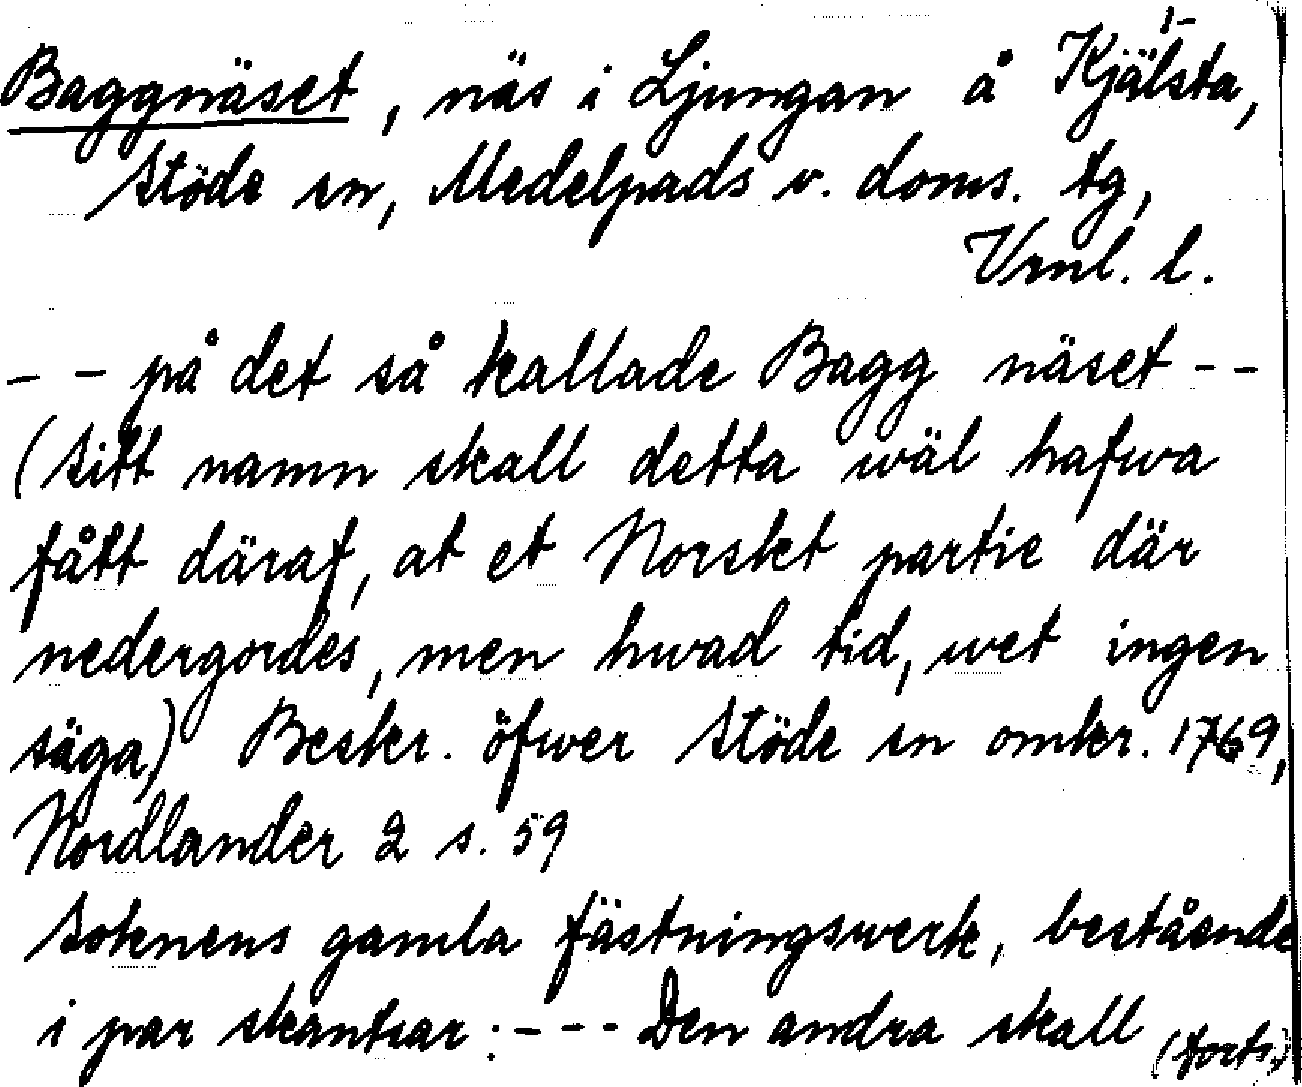 Baggnäset, näs i Ljungan å Kjälsta,
Stöde sn, Medelpads v. doms. tg,
Vrnl. l.
- - på det så kallade Bagg näset - -
(Sitt namn skall detta wäl hafwa
fått däraf, at et Norskt partie där
nedergordes, men hwad tid, wet ingen
säga) Beskr. öfwer Stöde sn omkr. 1769,
Nordlander 2 s. 59
Soknens gamla fästningswerk, bestående
i par skantsar: - - - Den andra skall (forts.)